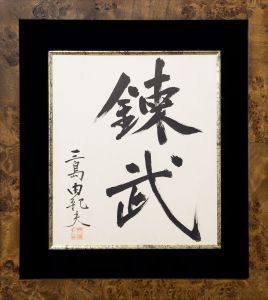 錬武
三島由紀夫